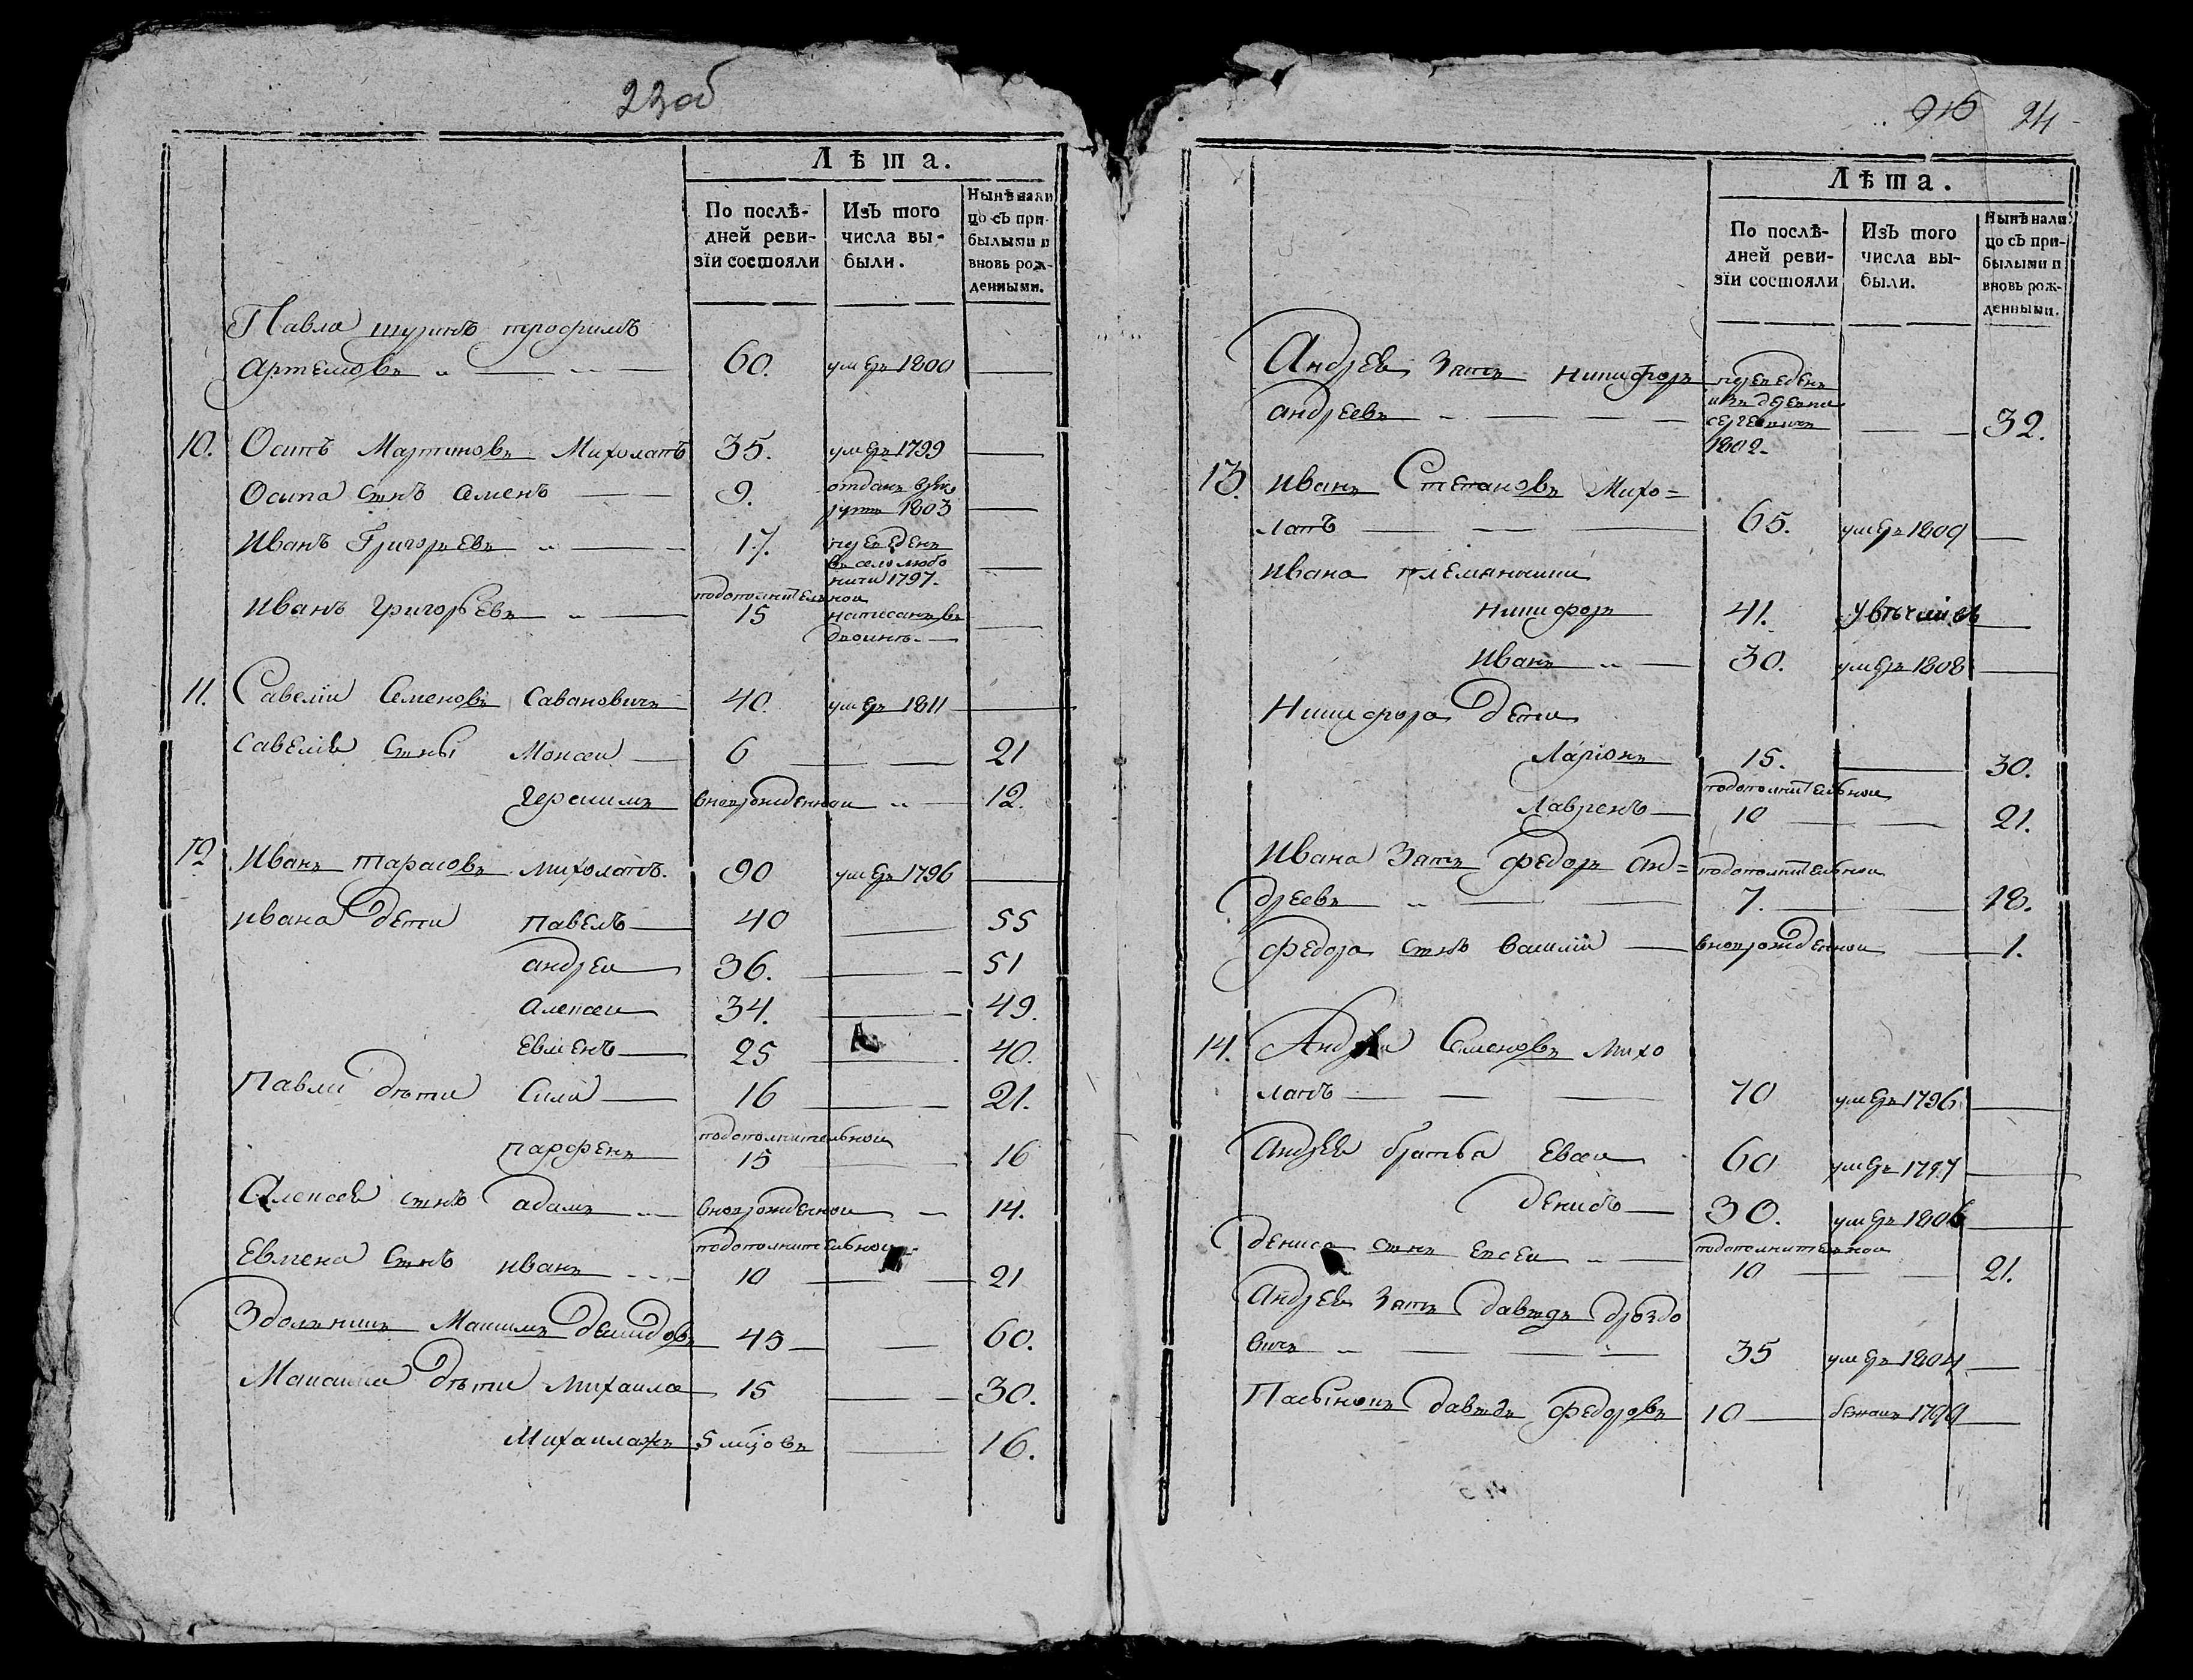 23об
Лѣта.
По послѣ-
дней реви-
зїи состояли
Изъ того
числа вы-
были.
Нынѣ нали
цо съ при-
былыми и
вновь рож-
денными.
Павла шуринъ трофимъ
Артемовъ 60. умеръ 1800
10. Осипъ Мартиновъ Михолапъ 35. умеръ 1799
Осипа сынъ Семенъ 9. отданъ в рек
руты 1803
Иванъ Григорьевъ 17. переведенъ
въ село любо
ничи 1797.
подополнительнои
Иванъ Григорьевъ 15 написанъ въ
двоинѣ
11. Савелїи Семеновъ Савановичъ 40. умеръ 1811
Савелїя сыны Моисеи 6 21
Герасимъ вновърожденнои 12.
12 Иванъ Тарасовъ Михолапъ. 90 умеръ 1796
Ивана дети Павелъ 40 55
андреи 36. 51
Алексеи 34. 49.
Евменъ 25 40.
Павла дѣти Сила 16 21.
подополнительнои
парфенъ 15 16
Алексея сынъ адамъ вновърожденнои 14.
подополнительнои
Евмена сынъ иванъ 10 21
Максимъ демидовъ 45 60.
Максима дѣти Михаила 15 30.
Михаилажъ 5 мцовъ 16.
24
Лѣта.
По послѣ-
дней реви-
зїи состояли
Изъ того
числа вы-
были.
Нынѣ нали
цо съ при-
былыми и
вновь рож-
денными.
Андрея зять Никифоръ переведенъ
андреевъ изъ деревни
32.
1802.
13. Иванъ Степановъ Михо=
лапъ 65. умеръ 1809
Ивана племянники
Никифоръ 41.
Иванъ 30. умеръ 1808
Никифора дети
Ларїонъ 15. 30.
подополнительнои
Лавренъ 10 21.
Ивана зять федоръ ан= подополнительнои
дреевъ 7. 18.
федора сынъ василїи вновърожденнои 1.
14. Андреи Семеновъ Михо
лапъ 70 умеръ 1796
Андрея братья Евсеи 60 умеръ 1797
денисъ 30. умеръ 1806
подополнительнои
дениса сынъ Евсеи 10 21.
Андрея зять давыдъ дроздо
вичъ 35 умеръ 1804
Пасынокъ давыдъ федоровъ 10 бежалъ 1799